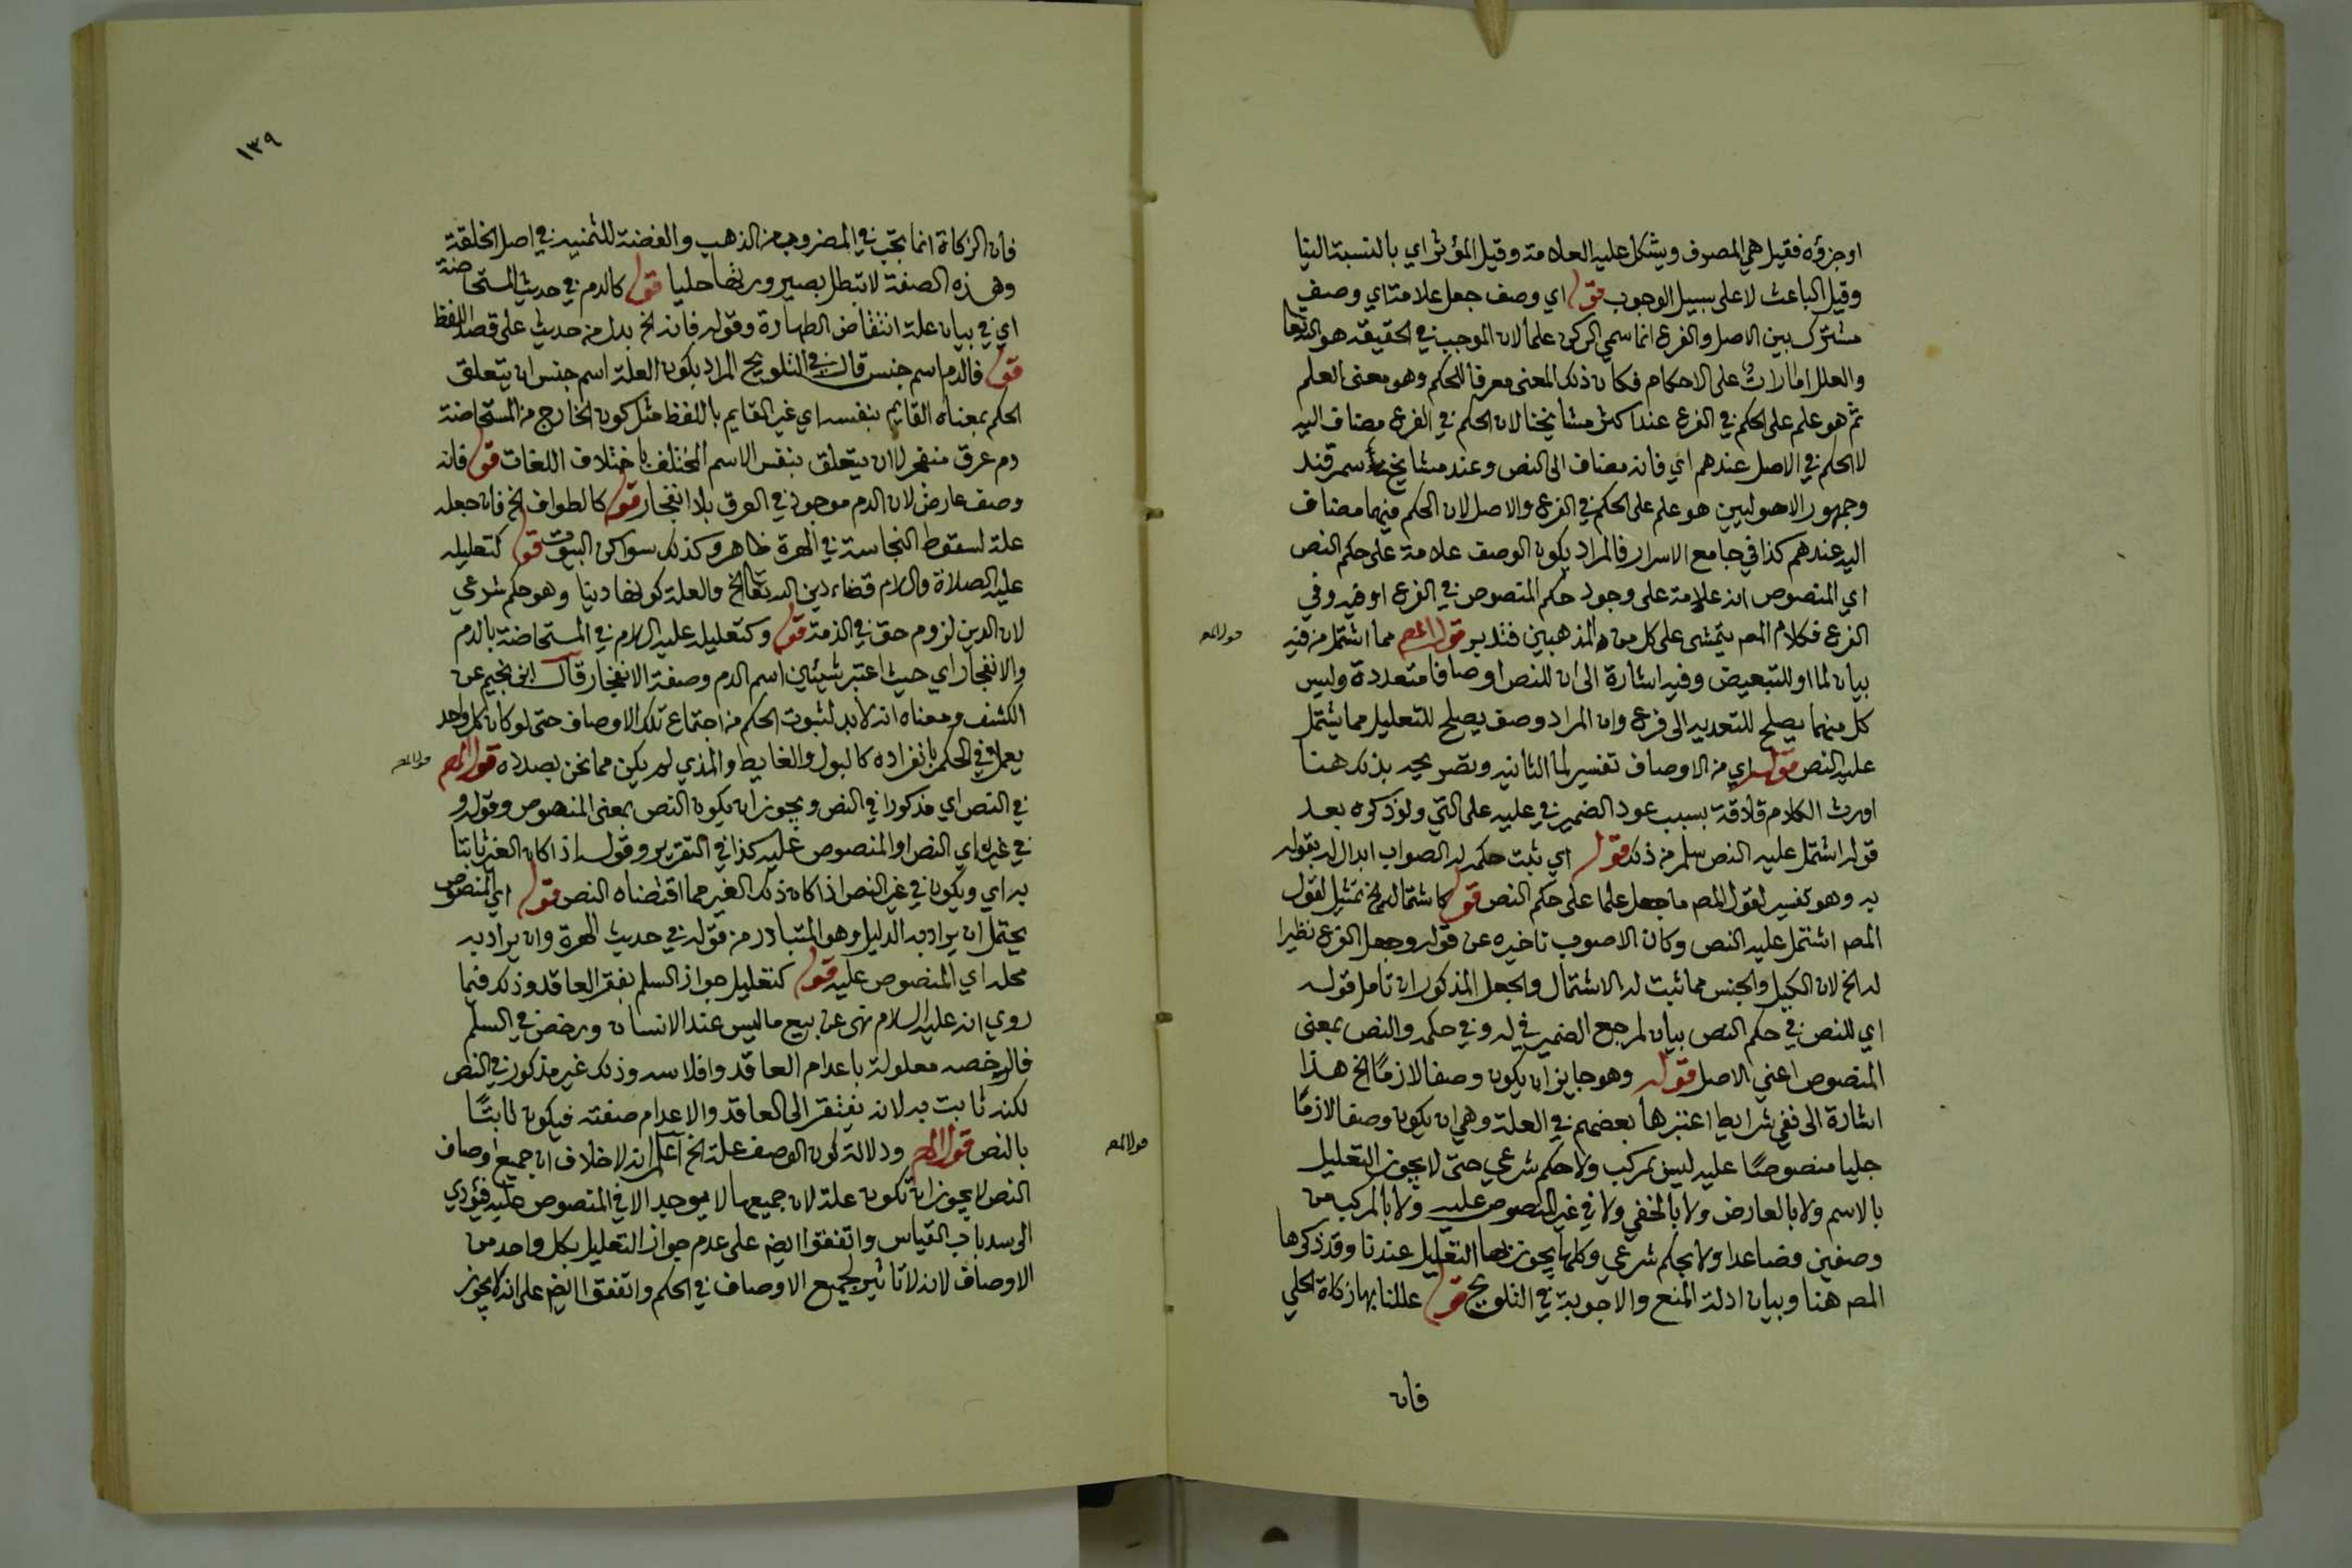 اوجزؤه فقيل هي المصرف ويشكل عليه العلامة وقيل المؤثر اي بالنسبة الينا
وقيل الباعث لا على سبيل الوجوب قوله اي وصف جعل علامة اي وصف
مشترك بين الاصل والفرع انما سمي الركن علما لان الموجب في الحقيقة هو الله تعا
والعلل امارات على الاحكام فكان ذلك المعنى معرفا للحكم وهو معنى العلم
ثم هو علم على الحكم في الفرع عند اكثر مشايخنا لان الحكم في الفرع مضاف اليه
لا الحكم في الاصل عندهم اي فانه مضاف الى النص وعند مشايخ سمرقند
وجمهور الاصوليين هو علم على الحكم في الفرع والاصل لان الحكم فيهما مضاف
اليه عندهم كذا في جامع الاسرار فالمراد بكون الوصف علامة على حكم النص
اي المنصوص انه علامة على وجود حكم المنصوص في الفرع او فيه وفي
الفرع فكلام المص يتمشى على كل من المذهبين فتدبر قول المص مما اشتمل من فيه
قول المص
بيان لما او للتبعيض وفيه اشارة الى ان للنص اوصافا متعددة وليس
كل منهما يصلح للتعدية الى فرع وان المراد وصف يصلح للتعليل مما يشتمل
عليه النص قوله اي من الاوصاف تفسير لما الثانيه وتصريحه بذلك هنا
اورث الكلام قلاقة بسبب عود الضمير في عليه على التي ولو ذكره بعد
قوله اشتمل عليه النص سلم من ذلك قوله اي ثبت حكمه له الصواب ابدال له بقوله
به وهو تفسير لقول المص ما جعل علما على حكم النص قوله كاشتماله الخ تمثيل لقول
المص اشتمل عليه النص وكان الاصوب تاخيره عن قوله وجعل الفرع نظيرا
له الخ لان الكيل والجنس مما ثبت له الاشتمال والجعل المذكوران تامل قوله
اي للنص في حكم النص بيان لمرجع الضمير في له وفي حكمه والنص بمعنى
المنصوص اعني الاصل قوله وهو جايز ان يكون وصفا لازمًا الخ هذا
اشارة الى نفي شرايط اعتبرها بعضهم في العلة وهي ان يكون وصفا لازمًا
جليا منصوصًا عليه ليس بمركب ولا حكم شرعي حتى لا يجوز التعليل
بالاسم ولا بالعارض ولا بالخفي ولا في غير المنصوص عليه ولا بالمركب من
وصفين فصاعدا ولا بحكم شرعي وكلها يجوز بها التعليل عندنا وقد ذكرها
المص هنا وبيان ادلة المنع والاجوبة في التلويح قوله عللنا بها زكاة الحلي
فان
١٣٩
فان الزكاة انما تجب في المضروب من الذهب والفضة للثمنية في اصل الخلقة
وهذه الصفة لا تبطل بصيرورتها حليا قوله كالدم في حديث المستحاضة
اي في بيان علة انتقاض الطهارة وقوله فانه الخ بدل من حديث على قصد اللفظ
قوله فالدم اسم جنس قال في التلويح المراد بكون العلة اسم جنس ان يتعلق
الحكم بمعناه القايم بنفسه اي غير القايم باللفظ مثل كون الخارج من المستحاضة
دم عرق منفجر لا ان يتعلق بنفس الاسم المختلف باختلاف اللغات قوله فانه
وصف عارض لان الدم موجود في العرق بلا انفجار قوله كالطواف الخ فان جعله
علة لسقوط النجاسة في الهرة ظاهر وكذلك سواكن البيوت قوله كتعليله
عليه الصلاة والسلام قضاء دين الله تعالى الخ والعلة كونها دينا وهو حكم شرعي
لان الدين لزوم حق في الذمة قوله وكتعليله عليه السلام في المستحاضة بالدم
والانفجار اي حيث اعتبر شيئين اسم الدم وصفة الانفجار قال ابن نجيم عن
الكشف ومعناه انه لا بد لثبوت الحكم من اجتماع تلك الاوصاف حتى لو كان كل واحد
يعمل في الحكم بانفراده كالبول والغايط والمذي لم يكن مما نحن بصدده قول المص
قول المص
في النص اي مذكورا في النص ويجوز ان يكون النص بمعنى المنصوص وقوله و
في غيره اي النص او المنصوص عليه كذا في التقرير وقوله اذا كان الغير ثابتا
به اي ويكون في غير النص اذا كان ذلك الغير مما اقتضاه النص قوله اي المنصوص
يحتمل ان يراد به الدليل وهو المتبادر من قوله في حديث الهرة وان يراد به
محله اي المنصوص عليه قوله كتعليل جواز السلم بفقر العاقد وذلك فيما
روي انه عليه السلام نهى عن بيع ما ليس عند الانسان ورخص في السلم
فالرخصه معلولة باعدام العاقد وافلاسه وذلك غير مذكور في النص
لكنه ثابت به لانه يفتقر الى العاقد والاعدام صفته فيكون ثابتًا
بالنص قول المص ودلالة كون الوصف علة الخ اعلم انه لا خلاف ان جميع اوصاف
قول المص
النص لا يجوز ان تكون علة لان جميعها لا يوجد الا في المنصوص عليه فيؤدي
الى سد باب القياس واتفقوا ايض على عدم جواز التعليل بكل واحد من
الاوصاف لانه لا تاثير لجميع الاوصاف في الحكم واتفقوا ايض على انه لا يجوز